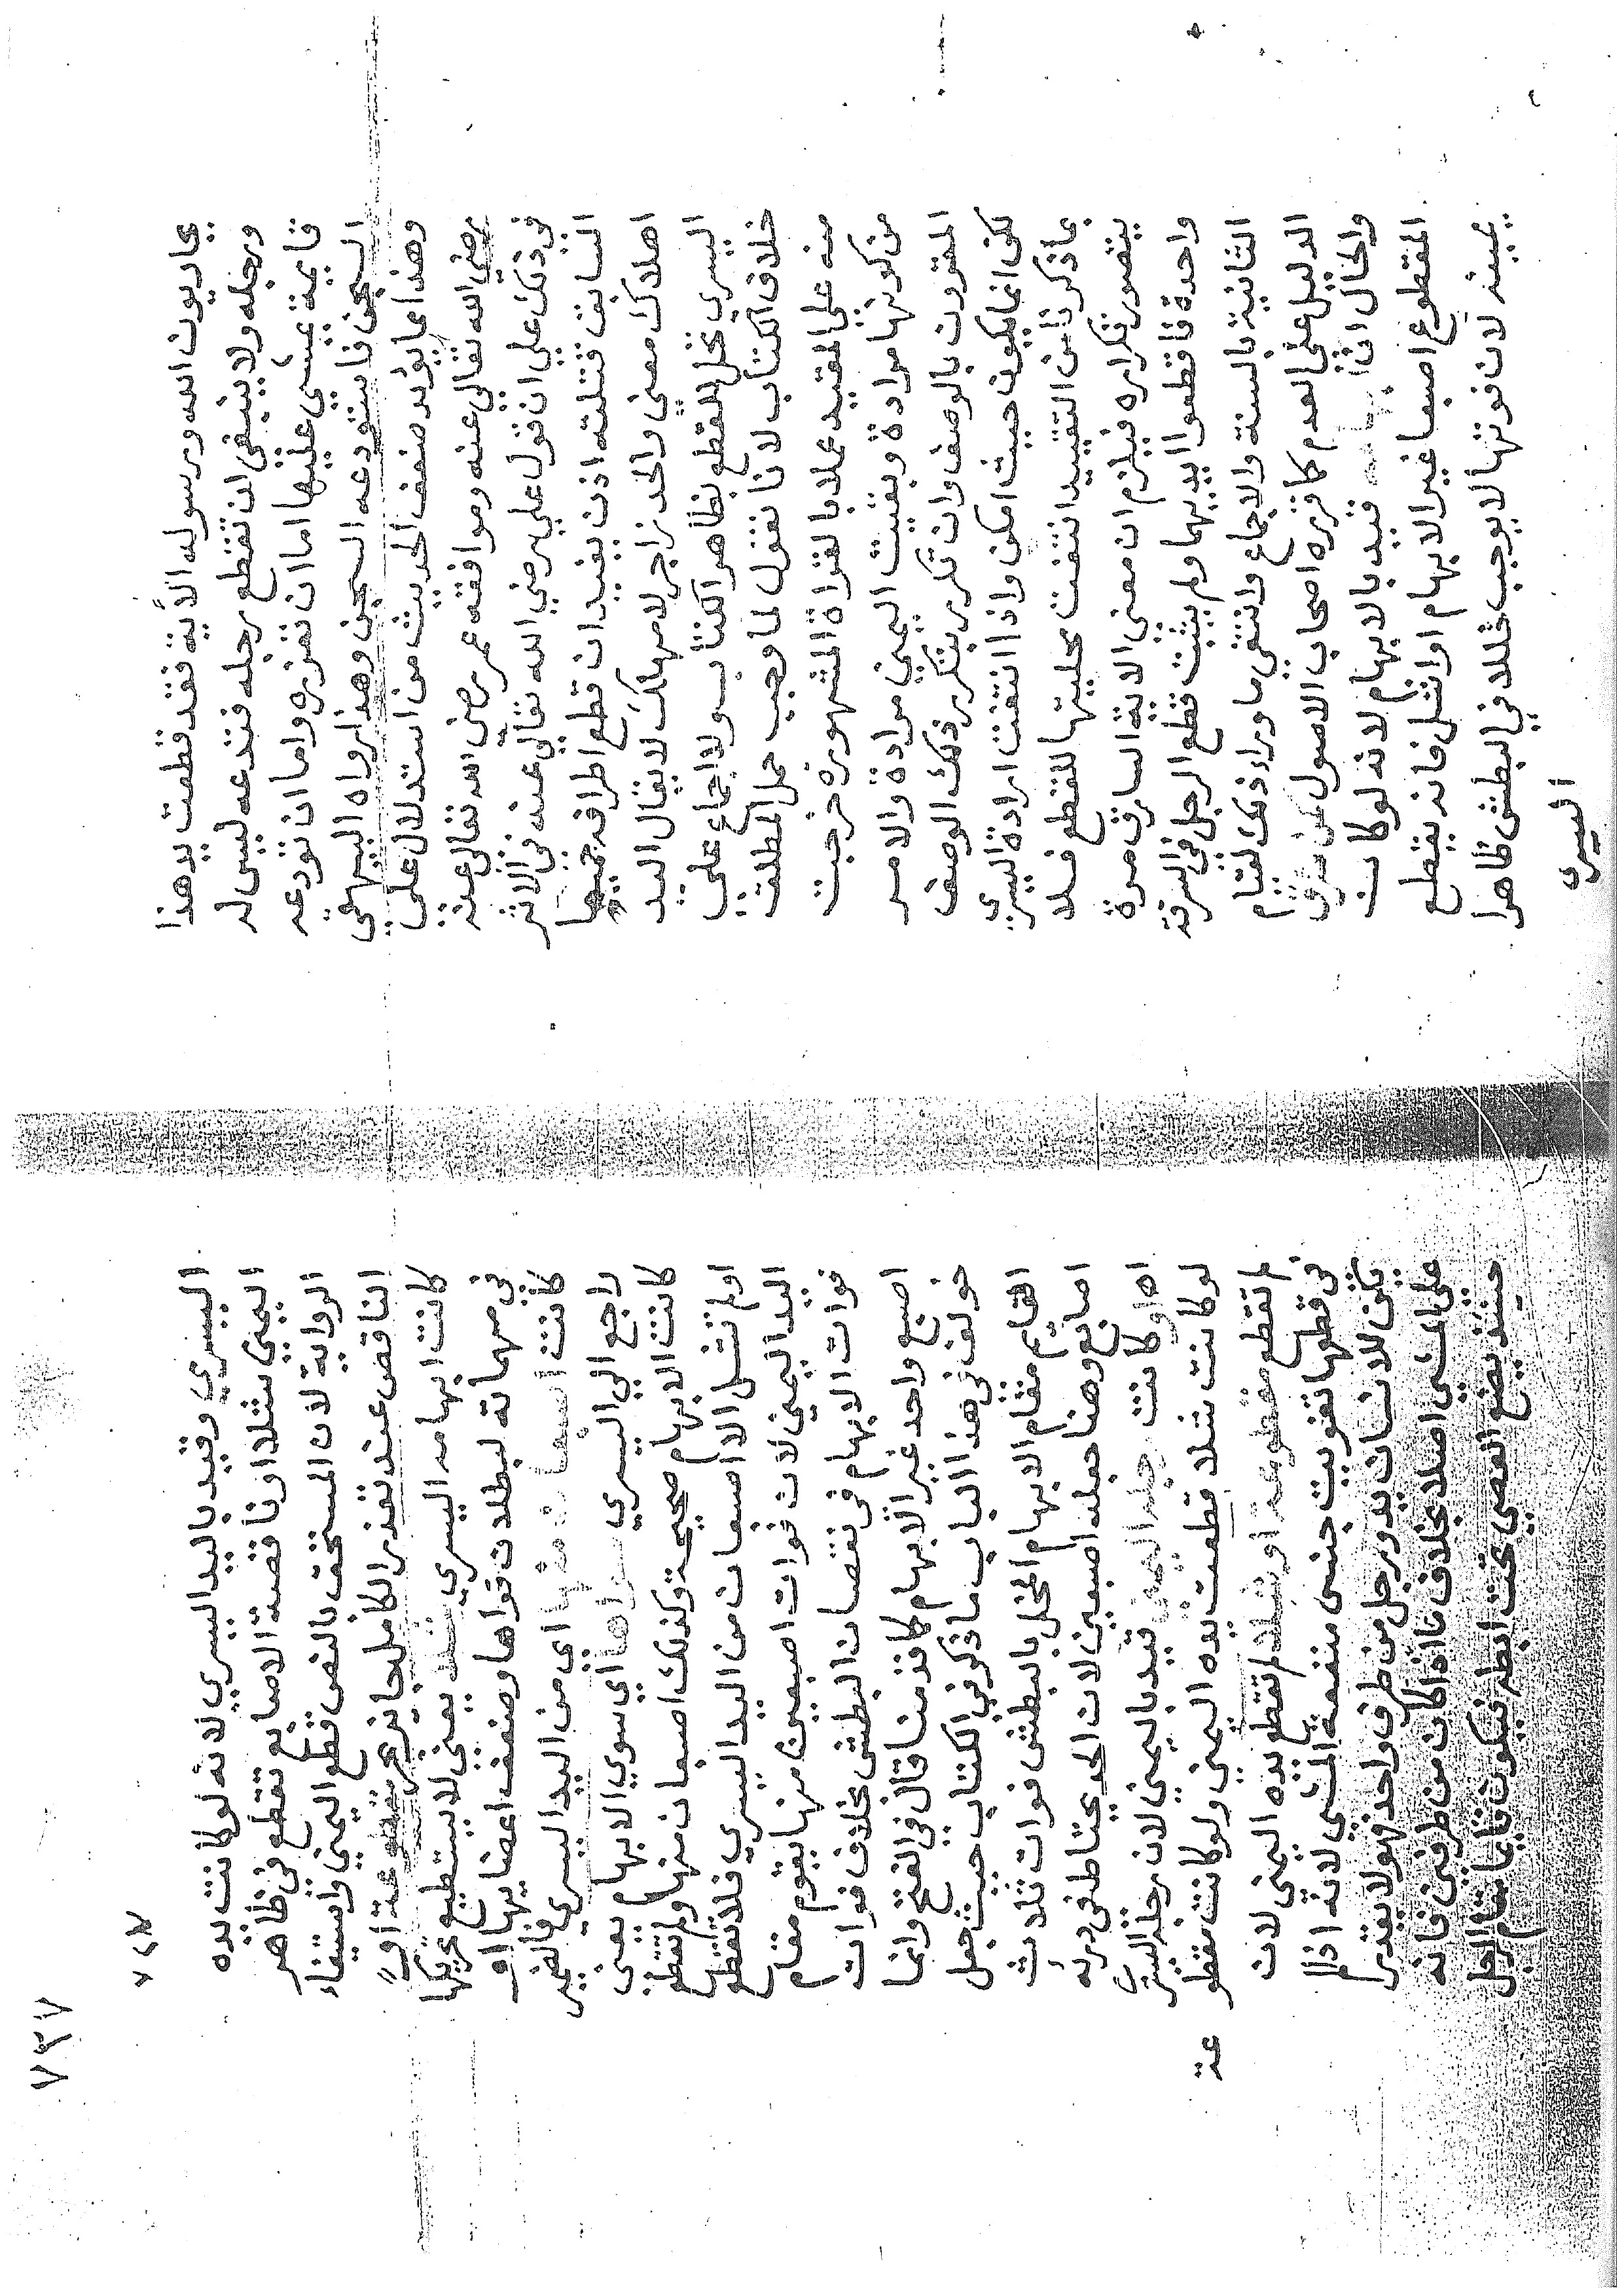 يحاربون الله ورسوله الآية فقد قطعت يد هذا
ورجله ولا ينبغي ان تقطع رجله فتدعه ليس له
قايمة يمشي عليها اما ان تعزره واما ان تودعه
السجن فاستودعه السجن وهذا رواه البيهقي
وهذا مما يؤيد ضعف الحديث من استدلال علي
رضي الله تعالى عنه وموافقة عمر رضي الله تعالى عنه
في ذلك علي ان قول علي رضي الله تعالي عنه في الاثر
السابق قتلته اذن يفيد ان قطع اطرافه جميعها
اهلاك معنى والحد زاجر لا مهلك لا يقال اليد
اليسرى محل للقطع بظاهر الكتاب ولا اجماع على
خلاف الكتاب لانا نقول لما وجب حمل المطلق
منه علي المقيد عملا بالقراة المشهورة خرجت
من كونها مرادة وبقيت اليمنى مرادة والامر
المقرون بالوصف وان تكرر بتكرر ذلك الوصف
لكن انما يكون حيث امكن واذا انتفت ارادة اليسرى
بما ذكرنا من التقييد انتفت محليتها للقطع فلا
يتصور تكراره فيلزم ان معنى الاية السارق مرة
واحدة فاقطعوا ايديهما ولم يثبت قطع الرجل في السرقة
الثانية بالسنة والاجماع وانتفي ما وراء ذلك لقيام
الدليل على العدم كما قرره اصحاب الاصول كمن سرق
والحال ان قيد بالابهام لانه لو كان
المقطوع اصبعا غير الابهام او اشل فانه يقطع
يمينه لان فوتها لا يوجب خللا في البطش ظاهرا
اليسرى
٧٣٧
اليسرى وقيد باليد اليسرى لانه لو كانت يده
اليمني شلا او ناقصة الاصابع تقطع في ظاهر
الرواية لان المستحق بالنص قطع اليمني واستيفاء
الناقص عند تعذر الكامل جايز مقطوعة او
كانت ابهامه اليسري شلا يعني لا يستطيع تحريكها
في مهماته لبطلان قواها وضعف اعضايها او
كانت اصبعان منها اي من اليد اليسرى فالضمير
راجع الي اليسري سواها اي سوي الابهام يعني
كانت الابهام صحيحة وكذلك اصبعان منها ولم تقطع
او لم تشل الا اصبعان من اليد اليسرى فلا تقطع
اليد اليمني لان فوات اصبعين منها يقوم مقام
فوات الابهام في نقصان البطش بخلاف فوات
اصبع واحد غير الابهام كما قدمنا قال في الفتح وانما
خولف في هذا الباب ما ذكر في الكتاب حيث جعل
القايم مقام الابهام المخل بالبطش فوات ثلاث
اصابع وهنا جعله اصبعين لان الحد يحتاط في درئه
اه او كانت رجله اليمنى قيد باليمني لان رجله اليسرى
لو كانت شلا قطعت يده اليمني ولو كانت مقطو
عة
لم تقطع مقطوعة او شلا لم تقطع يده اليمنى لان
في قطعها تفويت جنس منفعة المشي لانه اذا لم
يكن للانسان يد ورجل من طرف واحد فهو لا يقدر
على المشي اصلا بخلاف ما اذا كان من طرفين فانه
حينئذ يضع العصى تحت ابطه فيكون قايما مقام الرجل